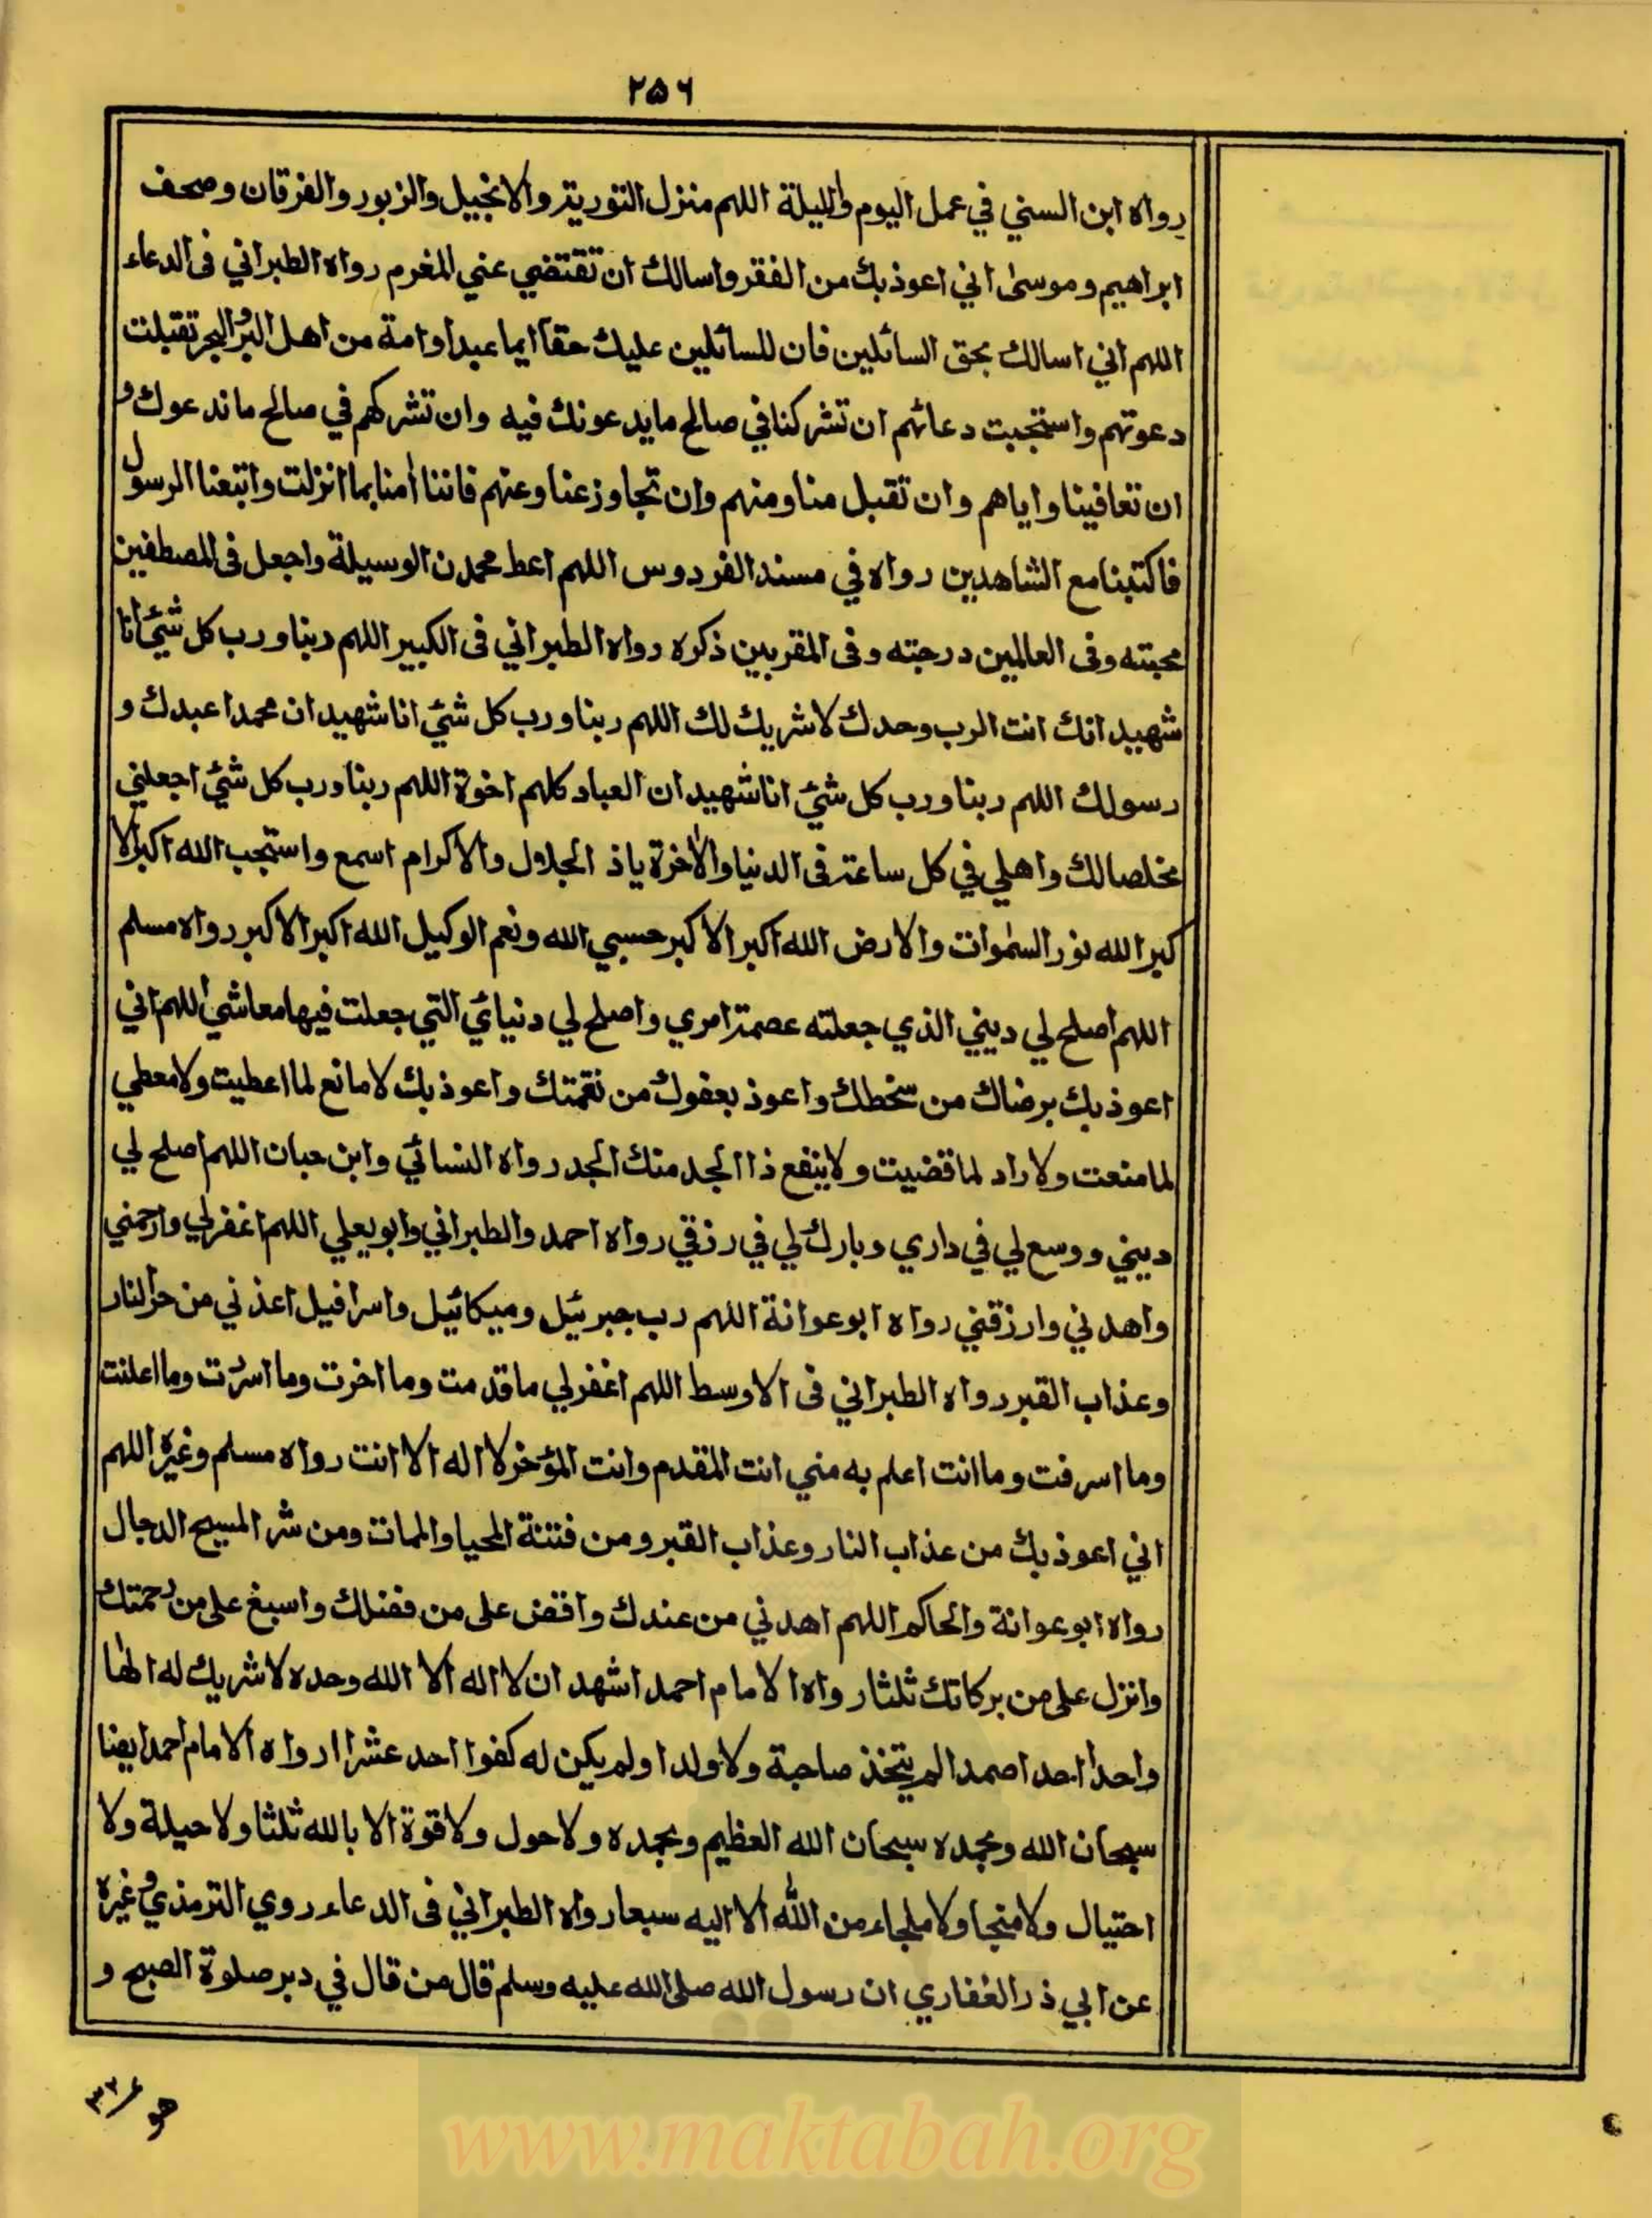 ۲۵۶
رواه ابن السني في عمل اليوم والليلة اللهم منزل التورية والانجيل والزبور والفرقان وصحف
ابراهيم وموسىٰ اني اعوذبك من الفقر واسالك ان تقتضي عني المغرم رواه الطبراني فى الدعاء
اللهم اني اسالك بحق السائلين فان للسائلين عليك حقا ايما عبد او امة من اهل البر والبحر تقبلت
دعوتهم واستجبت دعائهم ان تشركنا في صالح ما يدعونك فيه وان تشركهم في صالح ما ندعوك و
ان تعافينا واياهم وان تقبل منا ومنهم وان تجاوز عنا وعنهم فاننا اٰمنا بما انزلت واتبعنا الرسول
فاكتبنا مع الشاهدين رواه في مسند الفردوس اللهم اعط محمدن الوسيلة واجعل فى المصطفين
محبته وفى العالمين درجته وفى المقربين ذكره رواه الطبراني فى الكبير اللهم ربنا ورب كل شئ انا
شهيد انك انت الرب وحدك لا شريك لك اللهم ربنا ورب كل شئ انا شهيد ان محمدا عبدك و
رسولك اللهم ربنا ورب كل شئ انا شهيد ان العباد كلهم اخوة اللهم ربنا ورب كل شئ اجعلني
مخلصا لك واهلي في كل ساعة فى الدنيا والاٰخرة ياذ الجلال والاكرام اسمع واستجب الله اكبر الا
كبر الله نور السمٰوات والارض الله اكبر الاكبر حسبي الله ونعم الوكيل الله اكبر الاكبر رواه مسلم
اللهم اصلح لي ديني الذي جعلته عصمة امري واصلح لي دنيائي التي جعلت فيها معاشي اللهم اني
اعوذبك برضاك من سخطك واعوذ بعفوك من نقمتك واعوذبك لا مانع لما اعطيت ولا معطي
لما منعت ولا راد لما قضيت ولا ينفع ذا الجد منك الجد رواه النسائي وابن حبان اللهم اصلح لي
ديني ووسع لي في داري وبارك لي في رزقي رواه احمد والطبراني وابو يعلي اللهم اغفرلي وارحمني
واهدني وارزقني رواه ابو عوانة اللهم رب جبرئيل وميكائيل واسرافيل اعذني من حر النار
وعذاب القبر رواه الطبراني فى الاوسط اللهم اغفرلي ما قدمت وما اخرت وما اسررت وما اعلنت
وما اسرفت وما انت اعلم به مني انت المقدم وانت المؤخر لا اله الا انت رواه مسلم وغيره اللهم
اني اعوذبك من عذاب النار وعذاب القبر ومن فتنة المحيا والممات ومن شر المسيح الدجال
رواه ابو عوانة والحاكم اللهم اهدني من عندك وافض على من فضلك واسبغ على من رحمتك
وانزل على من بركاتك ثلثا رواه الامام احمد اشهد ان لا اله الا الله وحده لا شريك له الٰها
واحدا احدا صمدا لم يتخذ صاحبة ولا ولدا ولم يكن له كفوا احد عشرا رواه الامام احمد ايضا
سبحان الله وبحمده سبحان الله العظيم وبحمده ولا حول ولا قوة الا بالله ثلثا ولا حيلة ولا
احتيال ولا منجا ولا ملجاء من الله الا اليه سبعا رواه الطبراني فى الدعاء روي الترمذي وغيره
عن ابي ذر الغفاري ان رسول الله صلى الله عليه وسلم قال من قال في دبر صلوة الصبح و
www.maktabah.org